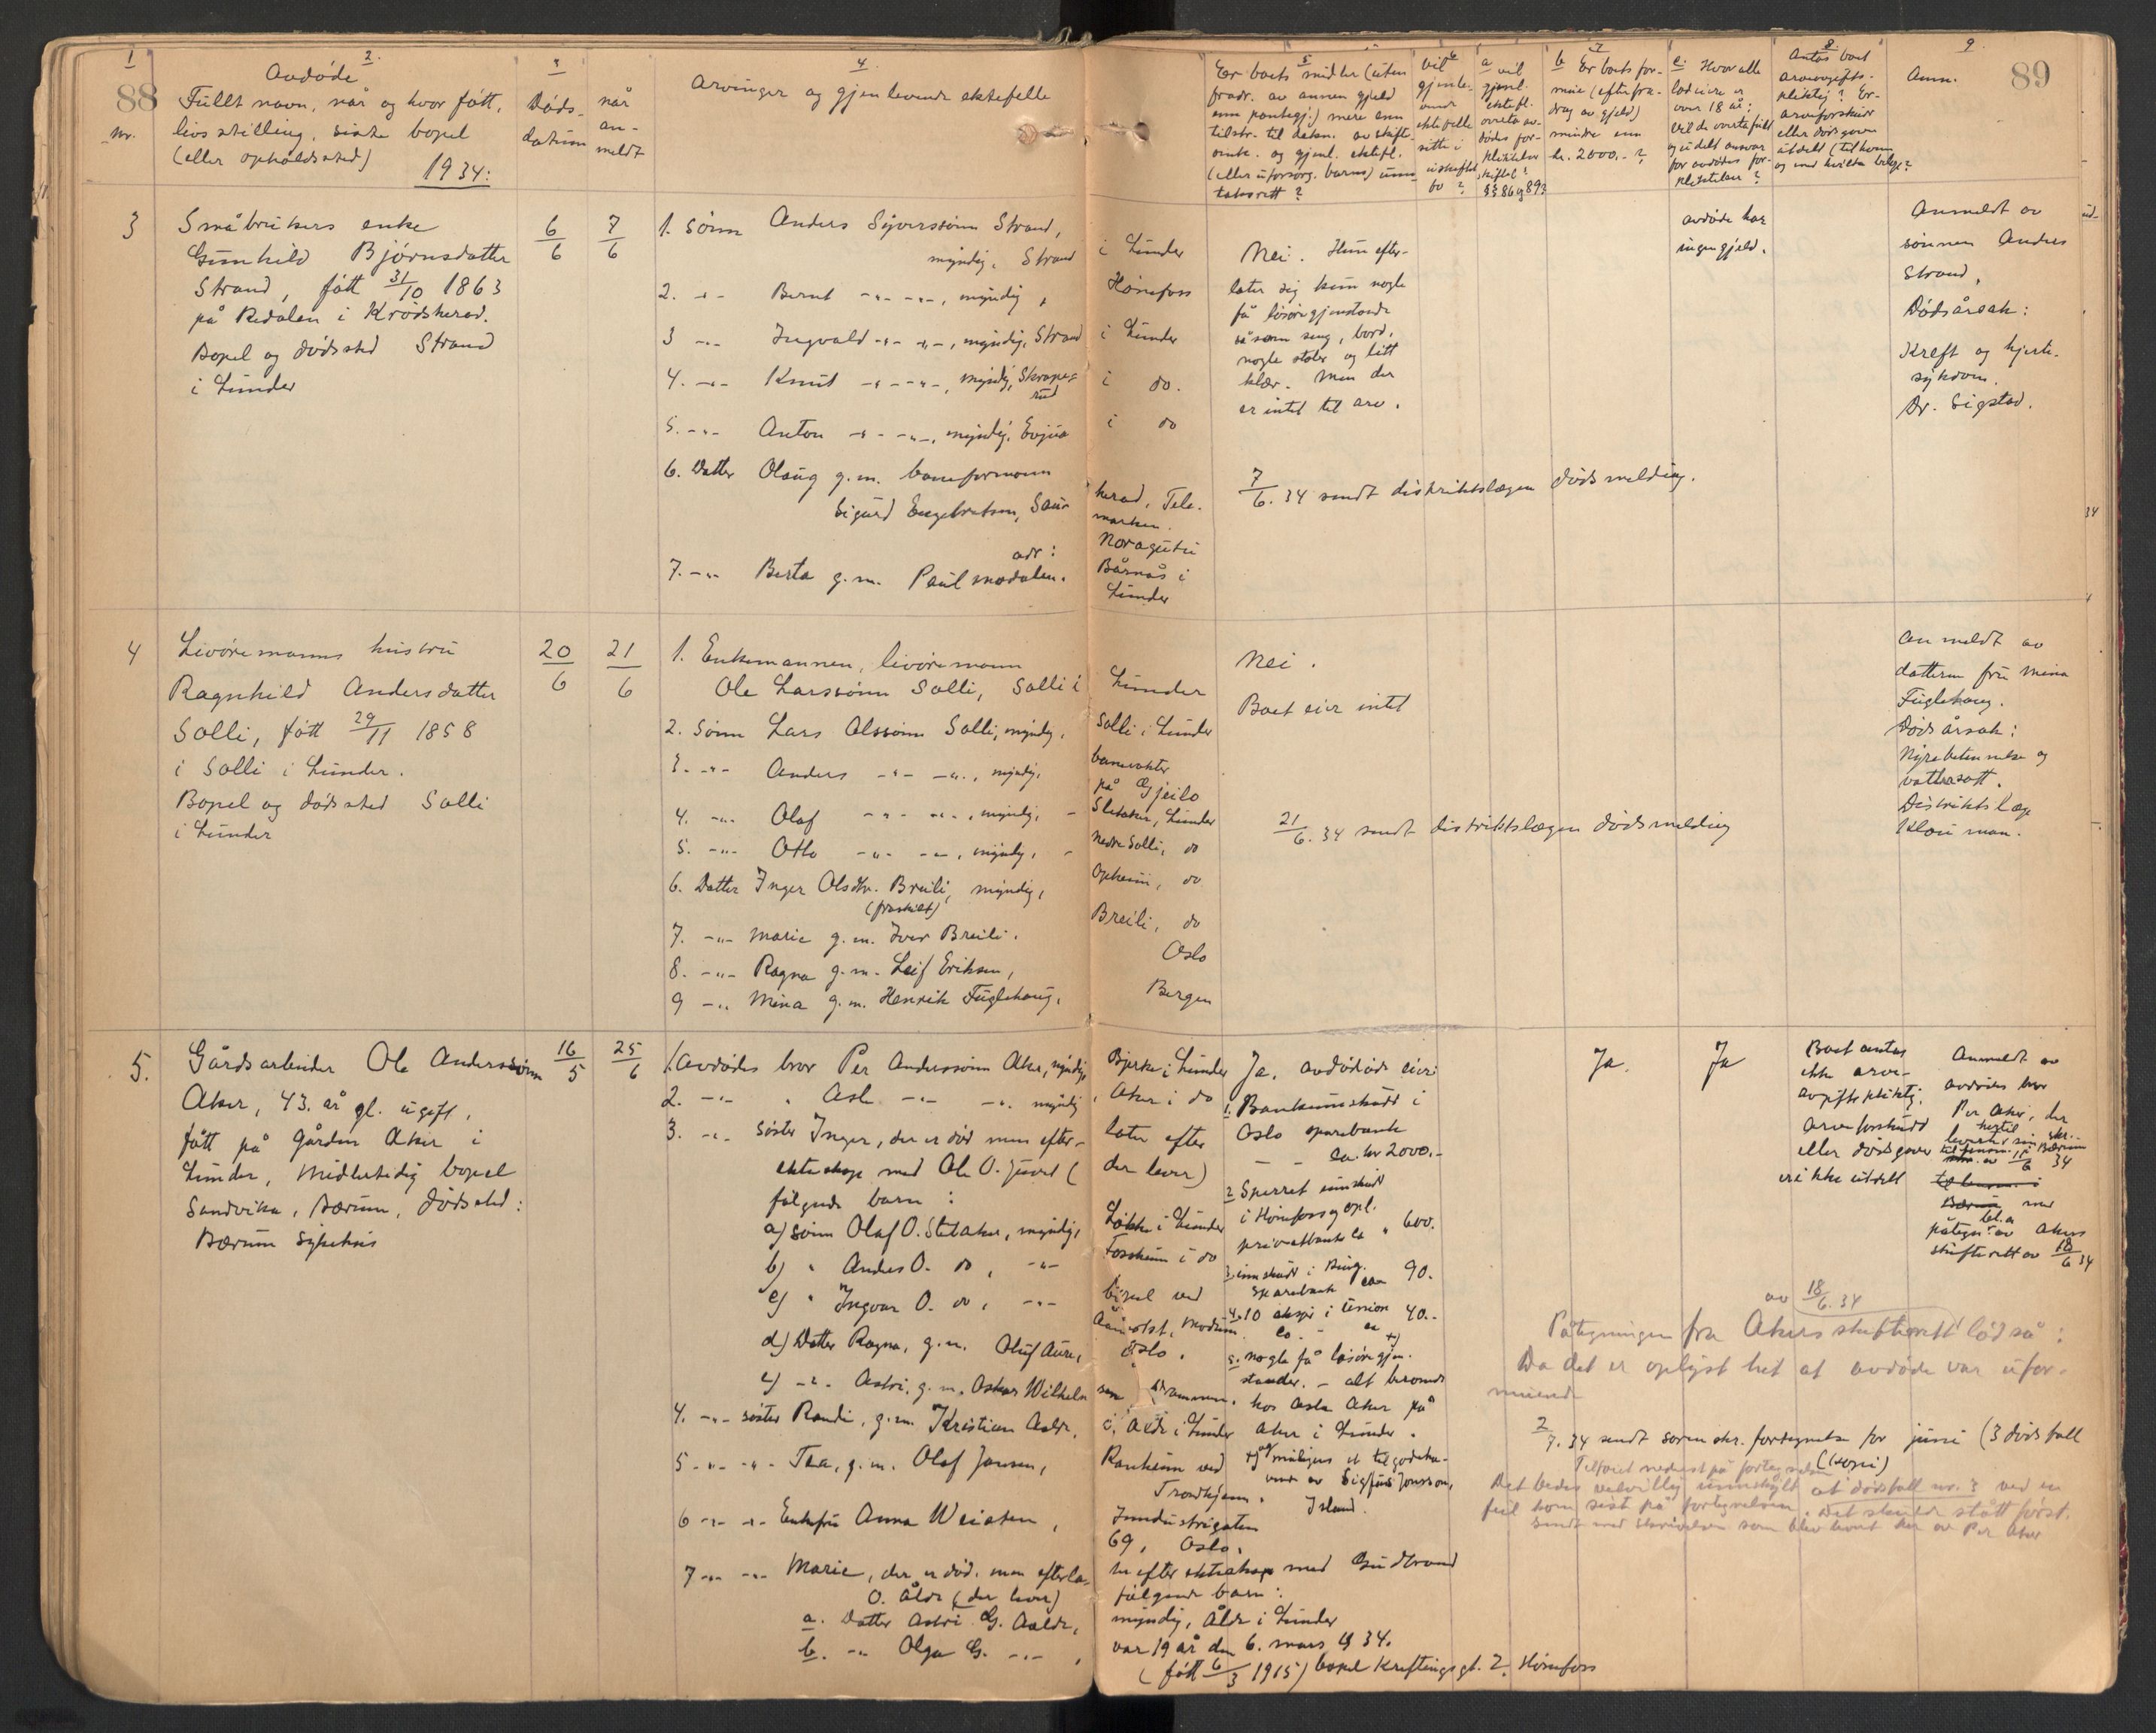 88
1
nr.
2.
Avdøde
Fullt navn, når og hvor født,
livsstilling, siste bopel
(eller opholdssted)
1934:
3
Døds-
datum
når
an-
meldt
4
Arvinger og gjenlevende ektefelle
5
Er boets midler (uten
fradr. av annen gjeld
enn pantegj.) mere enn
tilstr. til dekn. av skifte-
omk. og gjenl. ektefl.
(eller uforsørg. barns) unn-
taksrett?
6
Vil
gjenle-
vende
ektefelle
sitte i
uskiftet
bo?
7
a vil
gjenl.
ektefl.
overta av-
dødes for-
pliktelser
skiftel?
§§ 86 og 89?
b Er boets for-
mue (efter fra-
drag av gjeld)
mindre enn
kr. 2000.- ?
c. Hvor alle
lodeiere er
over 18 år:
Vil de overta fullt
og udelt ansvar
for avdødes for-
pliktelser?
8.
Antas boet
arveavgifts-
pliktig? Er
arveforskudd
eller dødsgaver
utdelt (til hvem
og med hvilke beløp?
9.
Anm.
89
3
Småbrukers enke
Gunhild Bjørnsdatter
Strand, født 31/10 1863
på Redalen i Krødsherad.
Bopel og dødssted Strand
i Lunder
6/6
7/6
1. Sønn Anders Syverssønn Strand,
myndig, Strand i Lunder
2. -"- Bernt -"- -"-, myndig, Hønefoss
3 -"- Ingvald -"- -"-, myndig, Strand i Lunder
4. -"- Knut -"- -"-, myndig, Skraperud i do.
5. -"- Anton -"- -"-, myndig, Evjua i do
6. Datter Olaug g.m. baneformann
Sigurd Engebretsen, Sauherad, Tele-
marken.
adr: Noragutu
7. -"- Berta g.m. Paul Modalen. Bårnås i
Lunder
Nei. Hun efter-
later sig kun nogle
få løsøregjenstande
så som seng, bord,
nogle stoler og litt
klær. Men der
er intet til arv.
avdøde har
ingen gjeld.
Anmeldt av
sønnen Anders
Strand,
Dødsårsak:
Kreft og hjerte-
sykdom.
Dr. Sigstad.
7/6. 34 sendt distriktslægen dødsmelding.
4
Livøremanns hustru
Ragnhild Andersdatter
Solli, født 29/11 1858
i Solli i Lunder.
Bopel og dødssted Solli
i Lunder
20/6
21/6
1. Enkemannen, livøremann
Ole Larssønn Solli, Solli i Lunder
2. Sønn Lars Olssønn Solli, myndig, Solli i Lunder
3. -"- Anders -"- -"-, myndig, banevokter
på Gjeilo
4. -"- Olaf -"- -"-, myndig, - Sletaker, Lunder
5. -"- Otto -"- -"-, myndig, - Nedre Solli, do
6. Datter Inger Olsdtr. Breili, myndig, Opheim, do
(fraskilt)
7. -"- Marie g.m. Iver Breili. Breili, do
8. -"- Ragna g.m. Leif Eriksen, Oslo
9 -"- Mina g.m. Henrik Fuglehaug, Bergen
Nei.
Boet eier intet
Anmeldt av
datteren fru Mina
Fuglehaug.
Dødsårsak:
Nyrebetennelse og
vattersott.
Distriktslæge
Klouman.
21/6. 34 sendt distriktslægen dødsmelding
5.
Gårdsarbeider Ole Anderssønn
Aker, 43. år gl. ugift,
født på gården Aker i
Lunder, midlertidig bopel
Sandvika, Bærum, dødssted:
Bærum sykehus
16/5
25/6
1. Avdødes bror Per Anderssønn Aker, myndig, Bjerke i Lunder
2. -"- " Asle -"- -"- myndig, Aker i do
3. -"- søster Inger, der er død men efterlater efter
ekteskap med Ole O. Juvet (der lever)
følgende barn:
a) sønn Olaf O. Sletaker, myndig, Løkke i Lunder
b) " Anders O. do, -"- Fossheim i do
c) " Ingvar O. do, -"- bopel ved
Åmot st. Modum
d) Datter Ragna, g.m. Oluf Aure, Oslo.
e) -"- Astri, g.m. Oskar Wilhelmsen Drammen.
4. -"- søster Randi, g.m. Kristian Aaldr, o. Åldr i Lunder
5 -"- -"- Thea, g.m. Olaf Jansen, Ranheim ved
Trondhjem.
6 -"- -"- Enkefru Anna Weisten, Industrigaten
69, Oslo.
7 -"- -"- Marie, der er død, men efterlater efter ekteskap med Gudbrand
O. Åldr (der lever) følgende barn:
a. Datter Astri G. Aaldr, myndig, Åldr i Lunder
b. -"- Olga G. -"-, var 19 år den 6. mars 1934.
(født 6/3 1915) bopel Kreftings gt. 2. Hønefoss
Ja, avdøde eier
1. Bankinnskudd i
Oslo sparebank
ca. kr 2000.-
2 Sperret innskudd
i Hønefoss og opl.
privatbank ca " 600.
3. innskudd i Ring.
Sparebank ca 90.
4. 10 aksjer i Union
Co. - ca 40.-
5. nogle få løsøregjen-
stander. - alt beroende
hos Asle Aker på
Aker i Lunder.
+) og muligens et tilgodeha-
vende av Sigfus Jonsson,
Island.
Ja.
Ja
Boet antas
ikke arve-
avgiftspliktig.
Arveforskudd
eller dødsgaver
er ikke utdelt
Anmeldt av
avdødes bror
Per Aker, der
hertil
Bærum
34
Bærum med
påtegn. av Akers
skifterett av 18/6 34
av 18/6. 34
Påtegningen fra Akers skifterett lød så:
Da det er oplyst het at avdøde var ufor-
muende
2/7. 34 sendt sorenskr. fortegnelse for juni (3 dødsfall
Tilføiet nederst på fortegnelsen (kopi)
Det bedes velvillig unnskyldt at dødsfall nr. 3 ved en
feil kom sist på fortegnelsen. Det skulde stått først.
sendt med skrivelsen som blev levert her av Per Aker